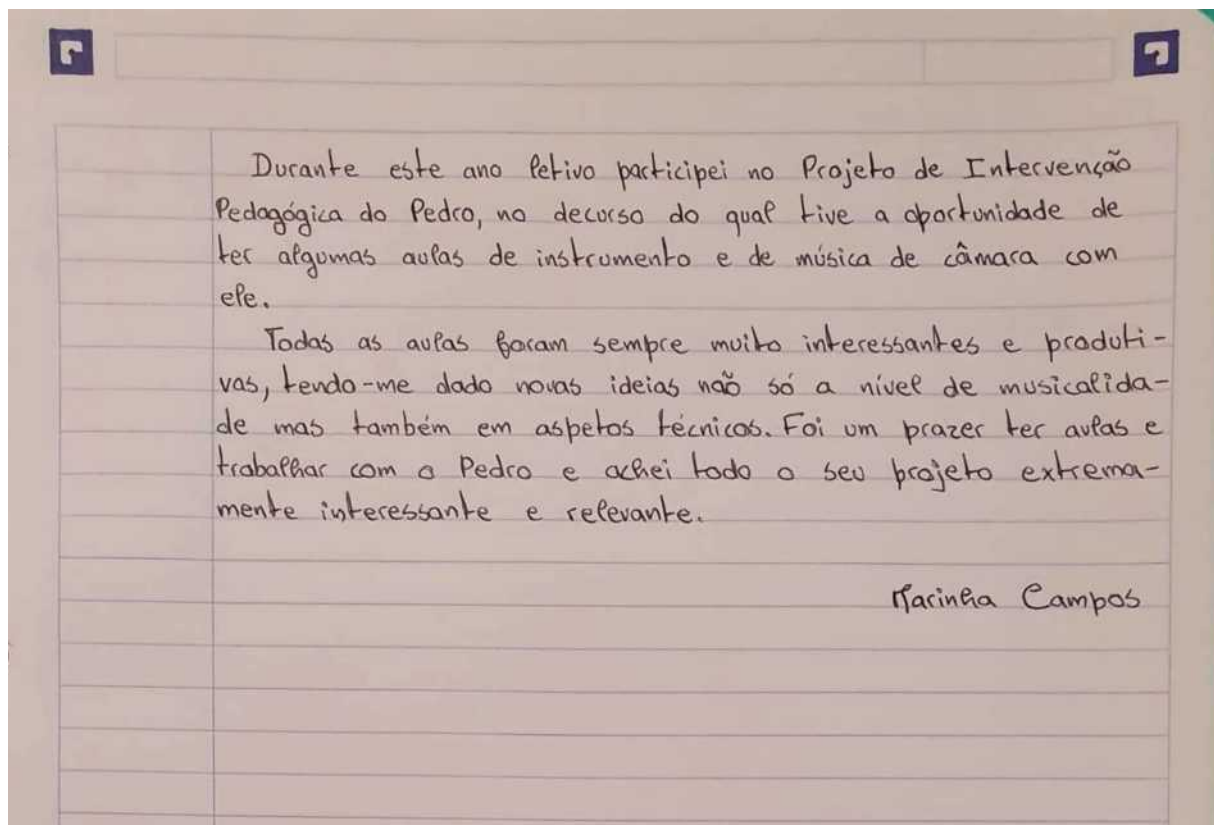 Durante este ano letivo participei no Projeto de Intervenção
Pedagógica do Pedro, no decurso do qual tive a oportunidade de
ter algumas aulas de instrumento e de música de câmara com
ele.
Todas as aulas foram sempre muito interessantes e produti-
vas, tendo-me dado novas ideias não só a nível de musicalida-
de mas também em aspetos técnicos. Foi um prazer ter aulas e
trabalhar com o Pedro e achei todo o seu projeto extrema-
mente interessante e relevante.
Marinha Campos